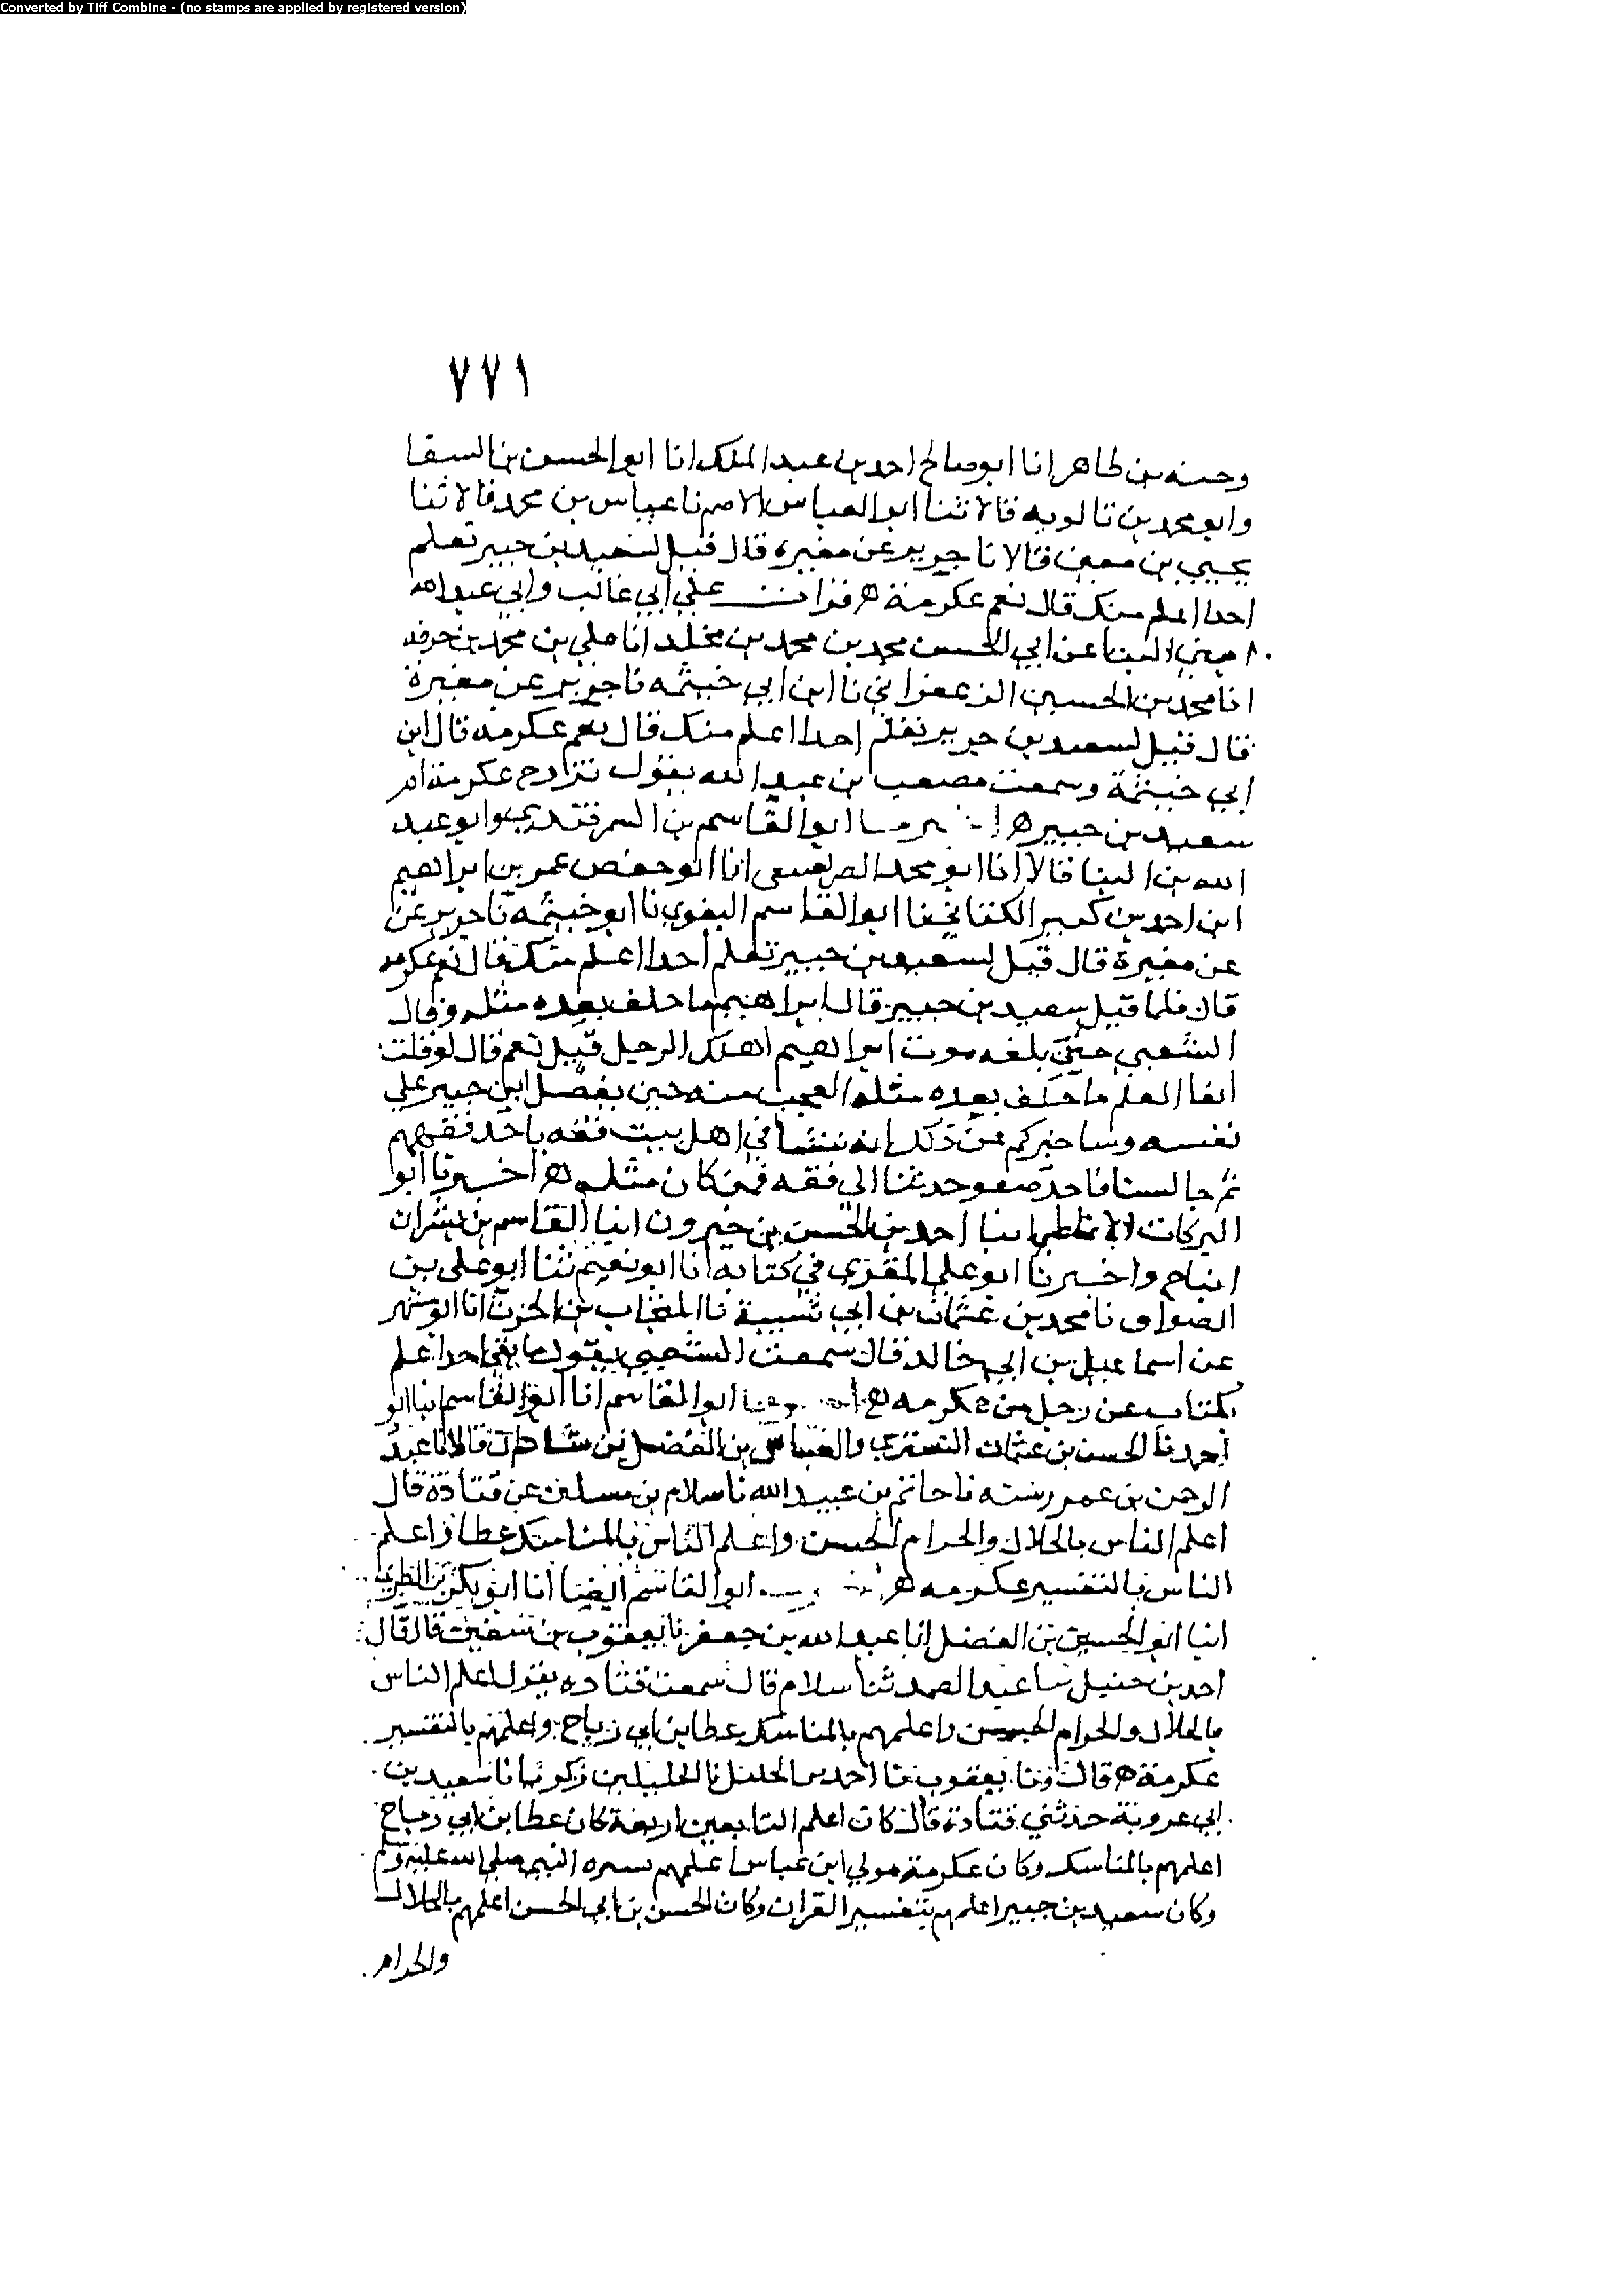 Converted by Tiff Combine - (no stamps are applied by registered version)
٧٧١
وحسنه بن طاهر انا ابو صالح احمد بن عبد الملك انا ابو الحسن بن السقا
وابو محمد بن بالويه قالا ثنا ابو العباس الاصم نا عباس بن محمد قالا ثنا
يحيي بن معين قالا نا جرير عن مغيرة قال قيل لسعيد بن جبير تعلم
احدا اعلم منك قال نعم عكرمة ه قرات علي ابي غالب وابي عبد الله
ابني البنا عن ابي الحسن محمد بن محمد بن مخلد انا علي بن محمد بن خزفه
انا محمد بن الحسين الزعفراني نا ابن ابي خيثمه نا جرير عن مغيرة
قال قيل لسعيد بن جبير تعلم احدا اعلم منك قال نعم عكرمه قال ابن
ابي خيثمة وسمعت مصعب بن عبد الله يقول تزوج عكرمة ام
سعيد بن جبير ه ابو القاسم بن السمرقندي وابو عبد
الله بن البنا قالا انا ابو محمد الصريفيني انا ابو حفص عمر بن ابراهيم
ابن احمد بن كثير الكتاني نا ابو القاسم البغوي نا ابو خيثمه نا جرير عن
عن مغيرة قال قيل لسعيد بن جبير تعلم احدا اعلم منك قال نعم عكرمه
قال فلما قتل سعيد بن جبير قال ابراهيم ما خلف بعده مثله وقال
الشعبي حين بلغه موت ابراهيم اهلك الرجل قيل نعم قال لو قلت
انعا العلم ما خلف بعده مثله العجب منه حين يفضل ابن جبير علي
نفسه وساخبركم عن ذلك انه نشا في اهل بيت فقه باخذ فقههم
ثم جالسنا فاخذ صفو حديثنا الي فقه فمن كان مثله ه اخبرنا ابو
البركات الانماطي انبا احمد بن الحسن بن خيرون انبا القاسم بن بشران
ابناح واخبرنا ابو علي المقري في كتابه انا ابو نعيم ثنا ابو علي بن
الصواف نا محمد بن عثمان بن ابي شيبة نا المنجاب بن الحرث انا ابو مسهر
عن اسماعيل بن ابي خالد قال سمعت الشعبي يقول ما بقي احد اعلم
بكتاب عن رجل من عكرمه ه ابو القاسم انا ابو القاسم انبا ابو
احمد نا الحسن بن عثمان التستري والعباس بن الفضل بن شاذان قالا نا عبد
الرحمن بن عمر رسته نا حاتم بن عبيد الله نا سلام بن مسكين عن قتادة قال
اعلم الناس بالحلال والحرام الحسن واعلم الناس بالمناسك عطا واعلم
الناس بالتفسير عكرمه ه ابو القاسم ايضا انا ابو بكر بن الطبري
انبا ابو الحسين بن الفضل انا عبد الله بن جعفر نا يعقوب بن سفين قال قال
احمد بن حنبل نبا عبد الصمد ثنا سلام قال سمعت قتاده يقول اعلم الناس
بالحلال والحرام الحسن واعلمهم بالمناسك عطا بن ابي رباح واعلمهم بالتفسير
عكرمة ه قال ونا يعقوب نا احمد بن الخليل نا الخليل بن زكريا نا سعيد بن
ابي عروبة حدثني قتادة قال كان اعلم التابعين اربعة كان عطا بن ابي رباح
اعلمهم بالمناسك وكان عكرمة مولي ابن عباس اعلمهم بسيره النبي صلي الله عليه وسلم
وكان سعيد بن جبير اعلمهم بتفسير القران وكان الحسن بن ابي الحسن اعلمهم بالحلال
والحرام